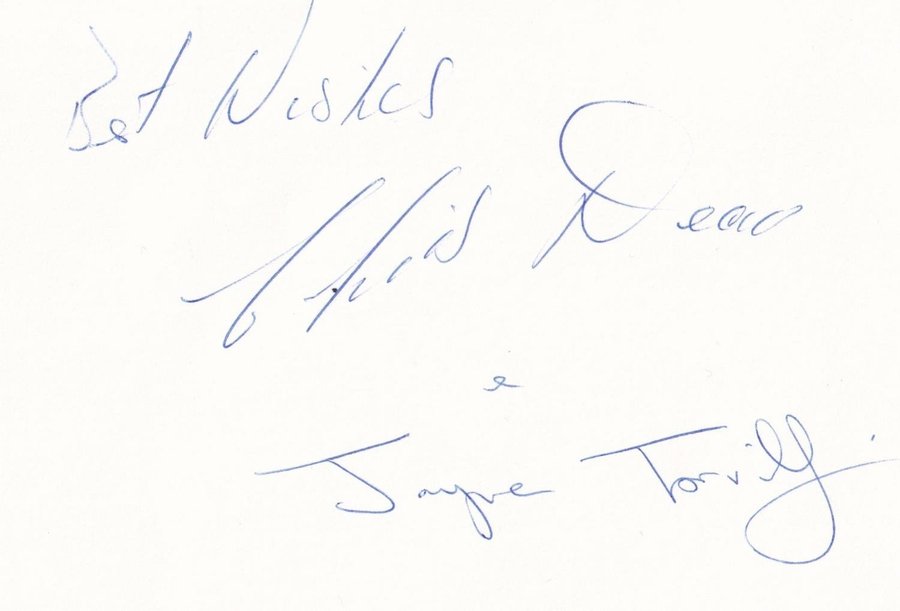 Best Wishes
Chris Dean
&
Jayne Torvill